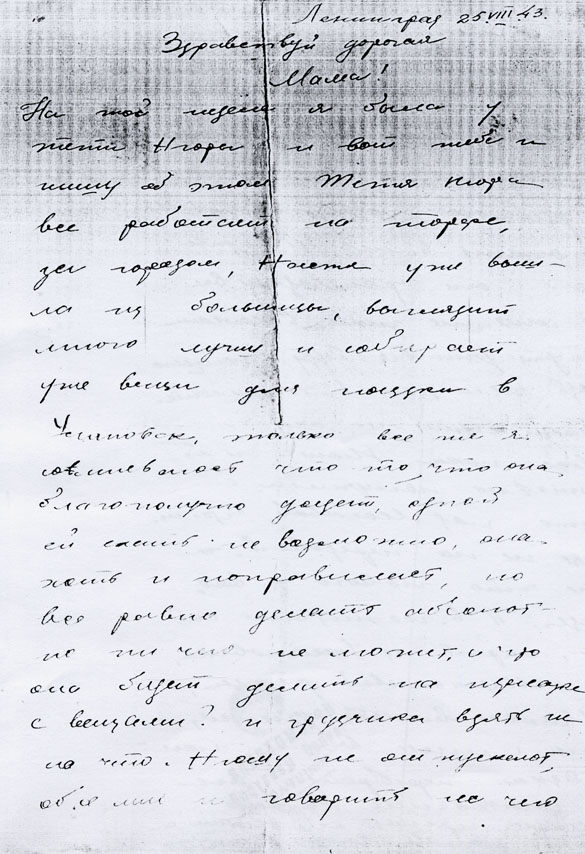 Ленинград 25.VIII 43.
Здравствуй дорогая
Мама!
На той неделе я была у
тети Нюры и вот тебе и
пишу об этом Тетя Нюра
все работает на торфе,
за городом, уже вош-
ла из больницы, выглядит
много лучше и собирает
уже вещи для поездки в
только все же я
что то, что она
благополучно доедет, одной
ей ехать не возможно, она
хоть и поправилась, но
все равно делать абсолют-
но ни чего не может, и что
она будет делать на
с вещами? и грузчика взять не
на что. не отпускают,
говорить не чего